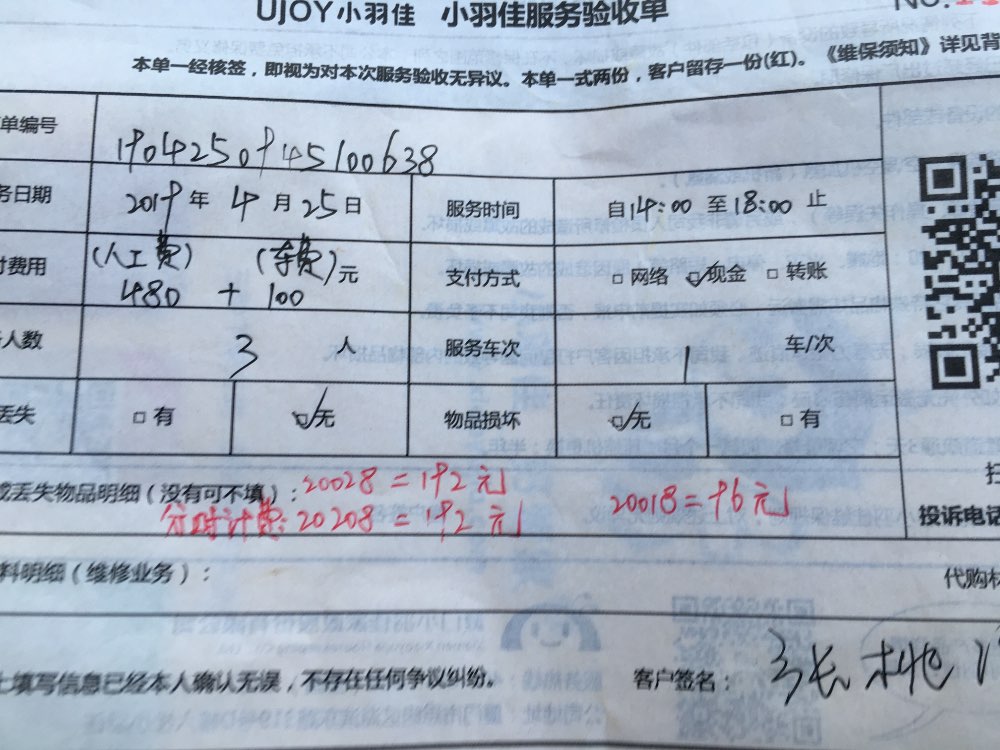 UJOY小羽佳 小羽佳服务验收单
No.
本单一经核签，即视为对本次服务验收无异议。本单一式两份，客户留存一份(红)。《维保须知》详见背
单编号 1904250945100638
务日期 2019 年 4 月 25 日 服务时间 自 14:00 至 18:00 止
付费用 (人工费) 480 + (车费) 100 元 支付方式 □ 网络 ☑ 现金 □ 转账
人数 3 人 服务车次 1 车/次
丢失 □ 有 ☑ 无 物品损坏 ☑ 无 □ 有
或丢失物品明细（没有可不填）：20028 = 192 元 20018 = 96 元
分时计费: 20208 = 192 元
扫
投诉电话
料明细（维修业务）： 代购材
上填写信息已经本人确认无误，不存在任何争议纠纷。 客户签名： 张桃